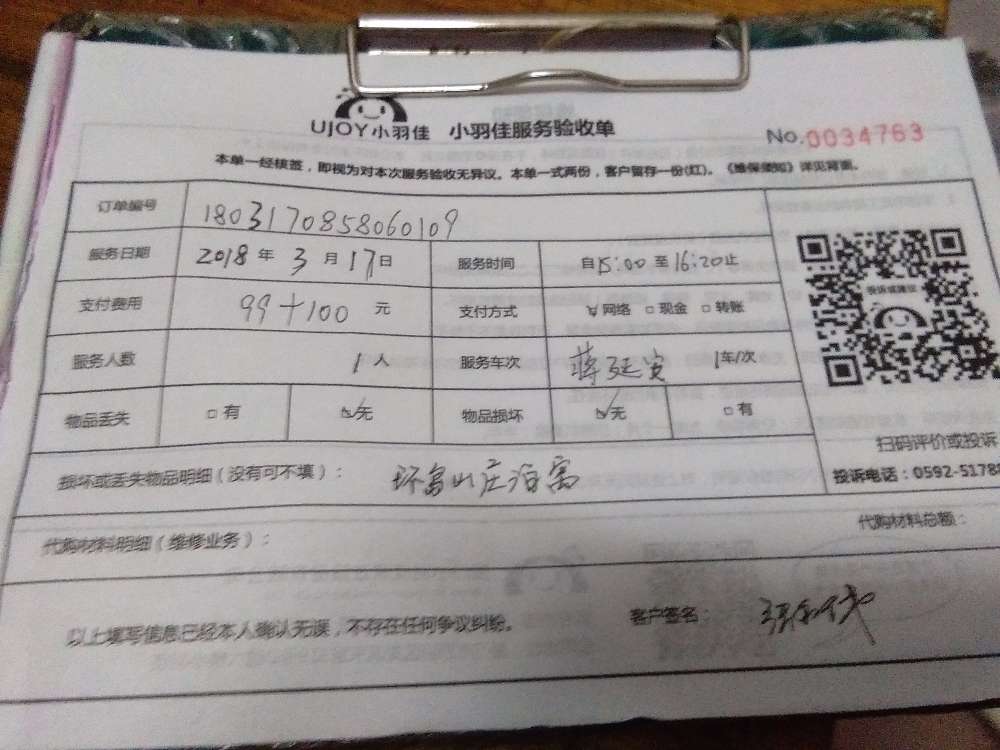 UJOY小羽佳 小羽佳服务验收单
No.0034763
本单一经核签，即视为对本次服务验收无异议。本单一式两份，客户留存一份(红)。《维保须知》详见背面。
订单编号 1803170858060109
服务日期 2018 年 3 月 17 日 服务时间 自 15:00 至 16:20 止
投诉或建议
支付费用 99+100 元 支付方式 网络 □ 现金 □ 转账
服务人数 1 人 服务车次 蒋延安 1 车/次
物品丢失 □ 有 ☑ 无 物品损坏 ☑ 无 □ 有
扫码评价或投诉
损坏或丢失物品明细（没有可不填）： 环岛山庄
投诉电话：0592-51788
代购材料明细（维修业务）： 代购材料总额：
以上填写信息已经本人确认无误，不存在任何争议纠纷。 客户签名：